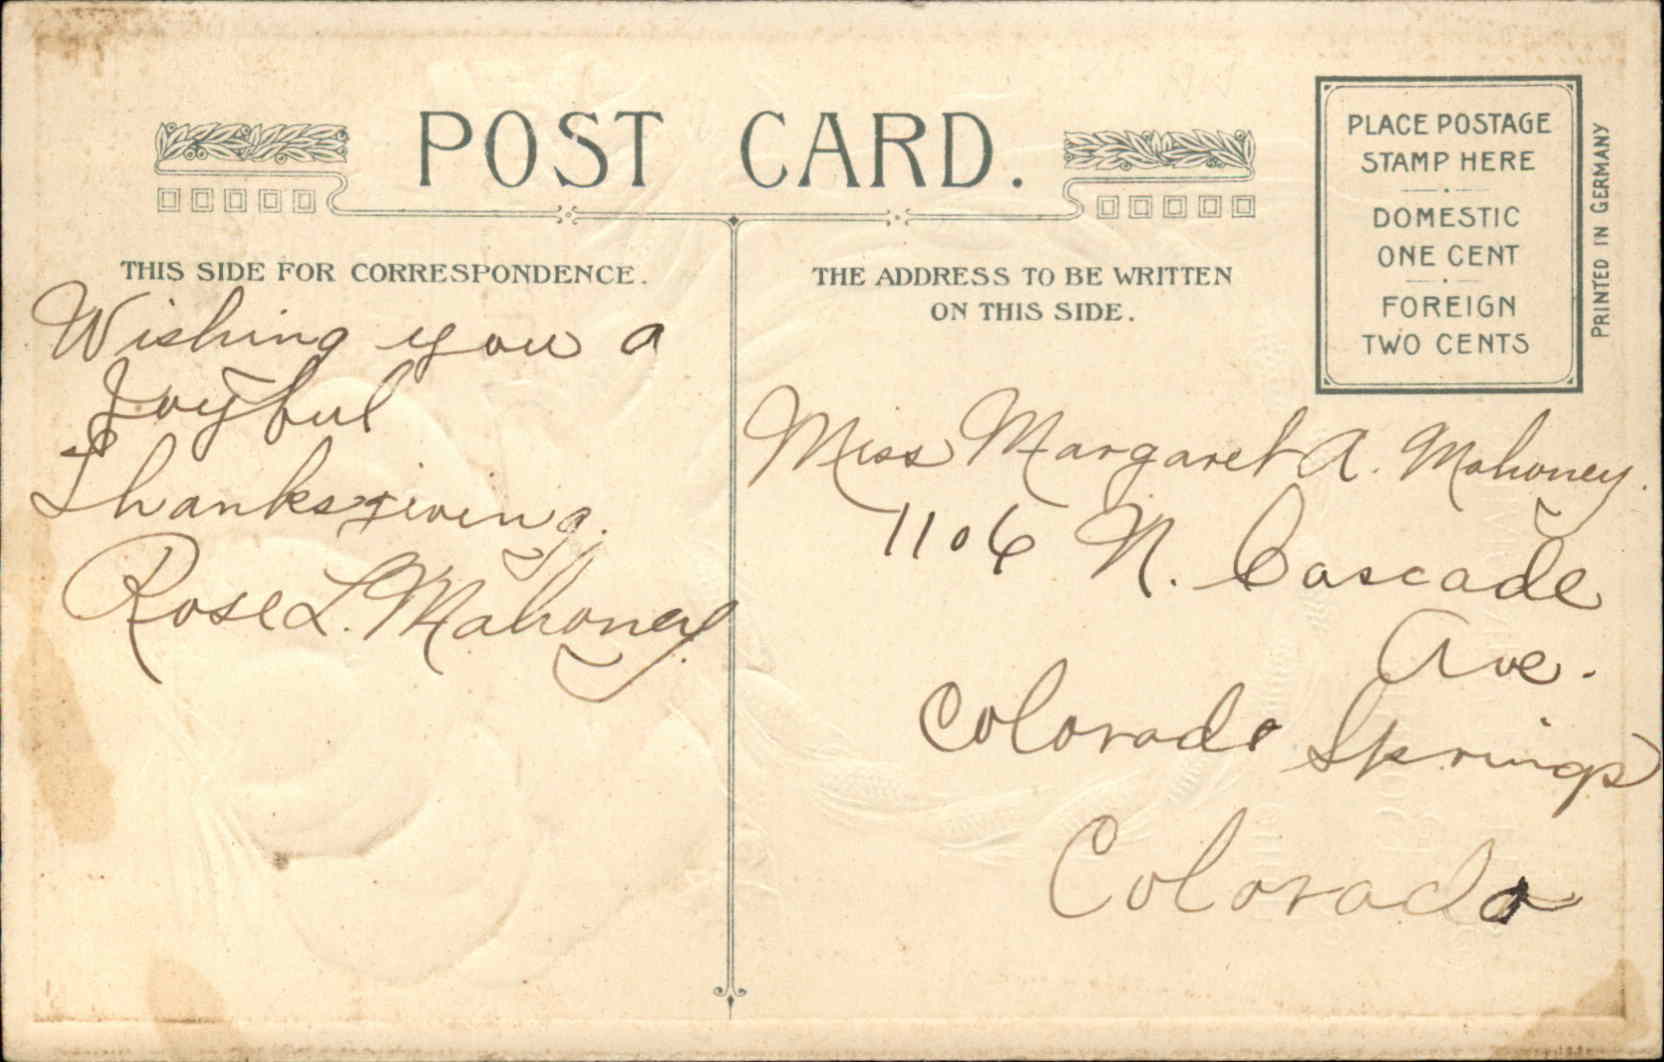 POST CARD.
THIS SIDE FOR CORRESPONDENCE.
Wishing you a
Joyful
Thanksgiving.
Rose L. Mahoney.
THE ADDRESS TO BE WRITTEN
ON THIS SIDE.
PLACE POSTAGE
STAMP HERE
DOMESTIC
ONE CENT
FOREIGN
TWO CENTS
PRINTED IN GERMANY
Miss Margaret A. Mahoney.
1106 N. Cascade
Ave.
Colorado Springs
Colorado